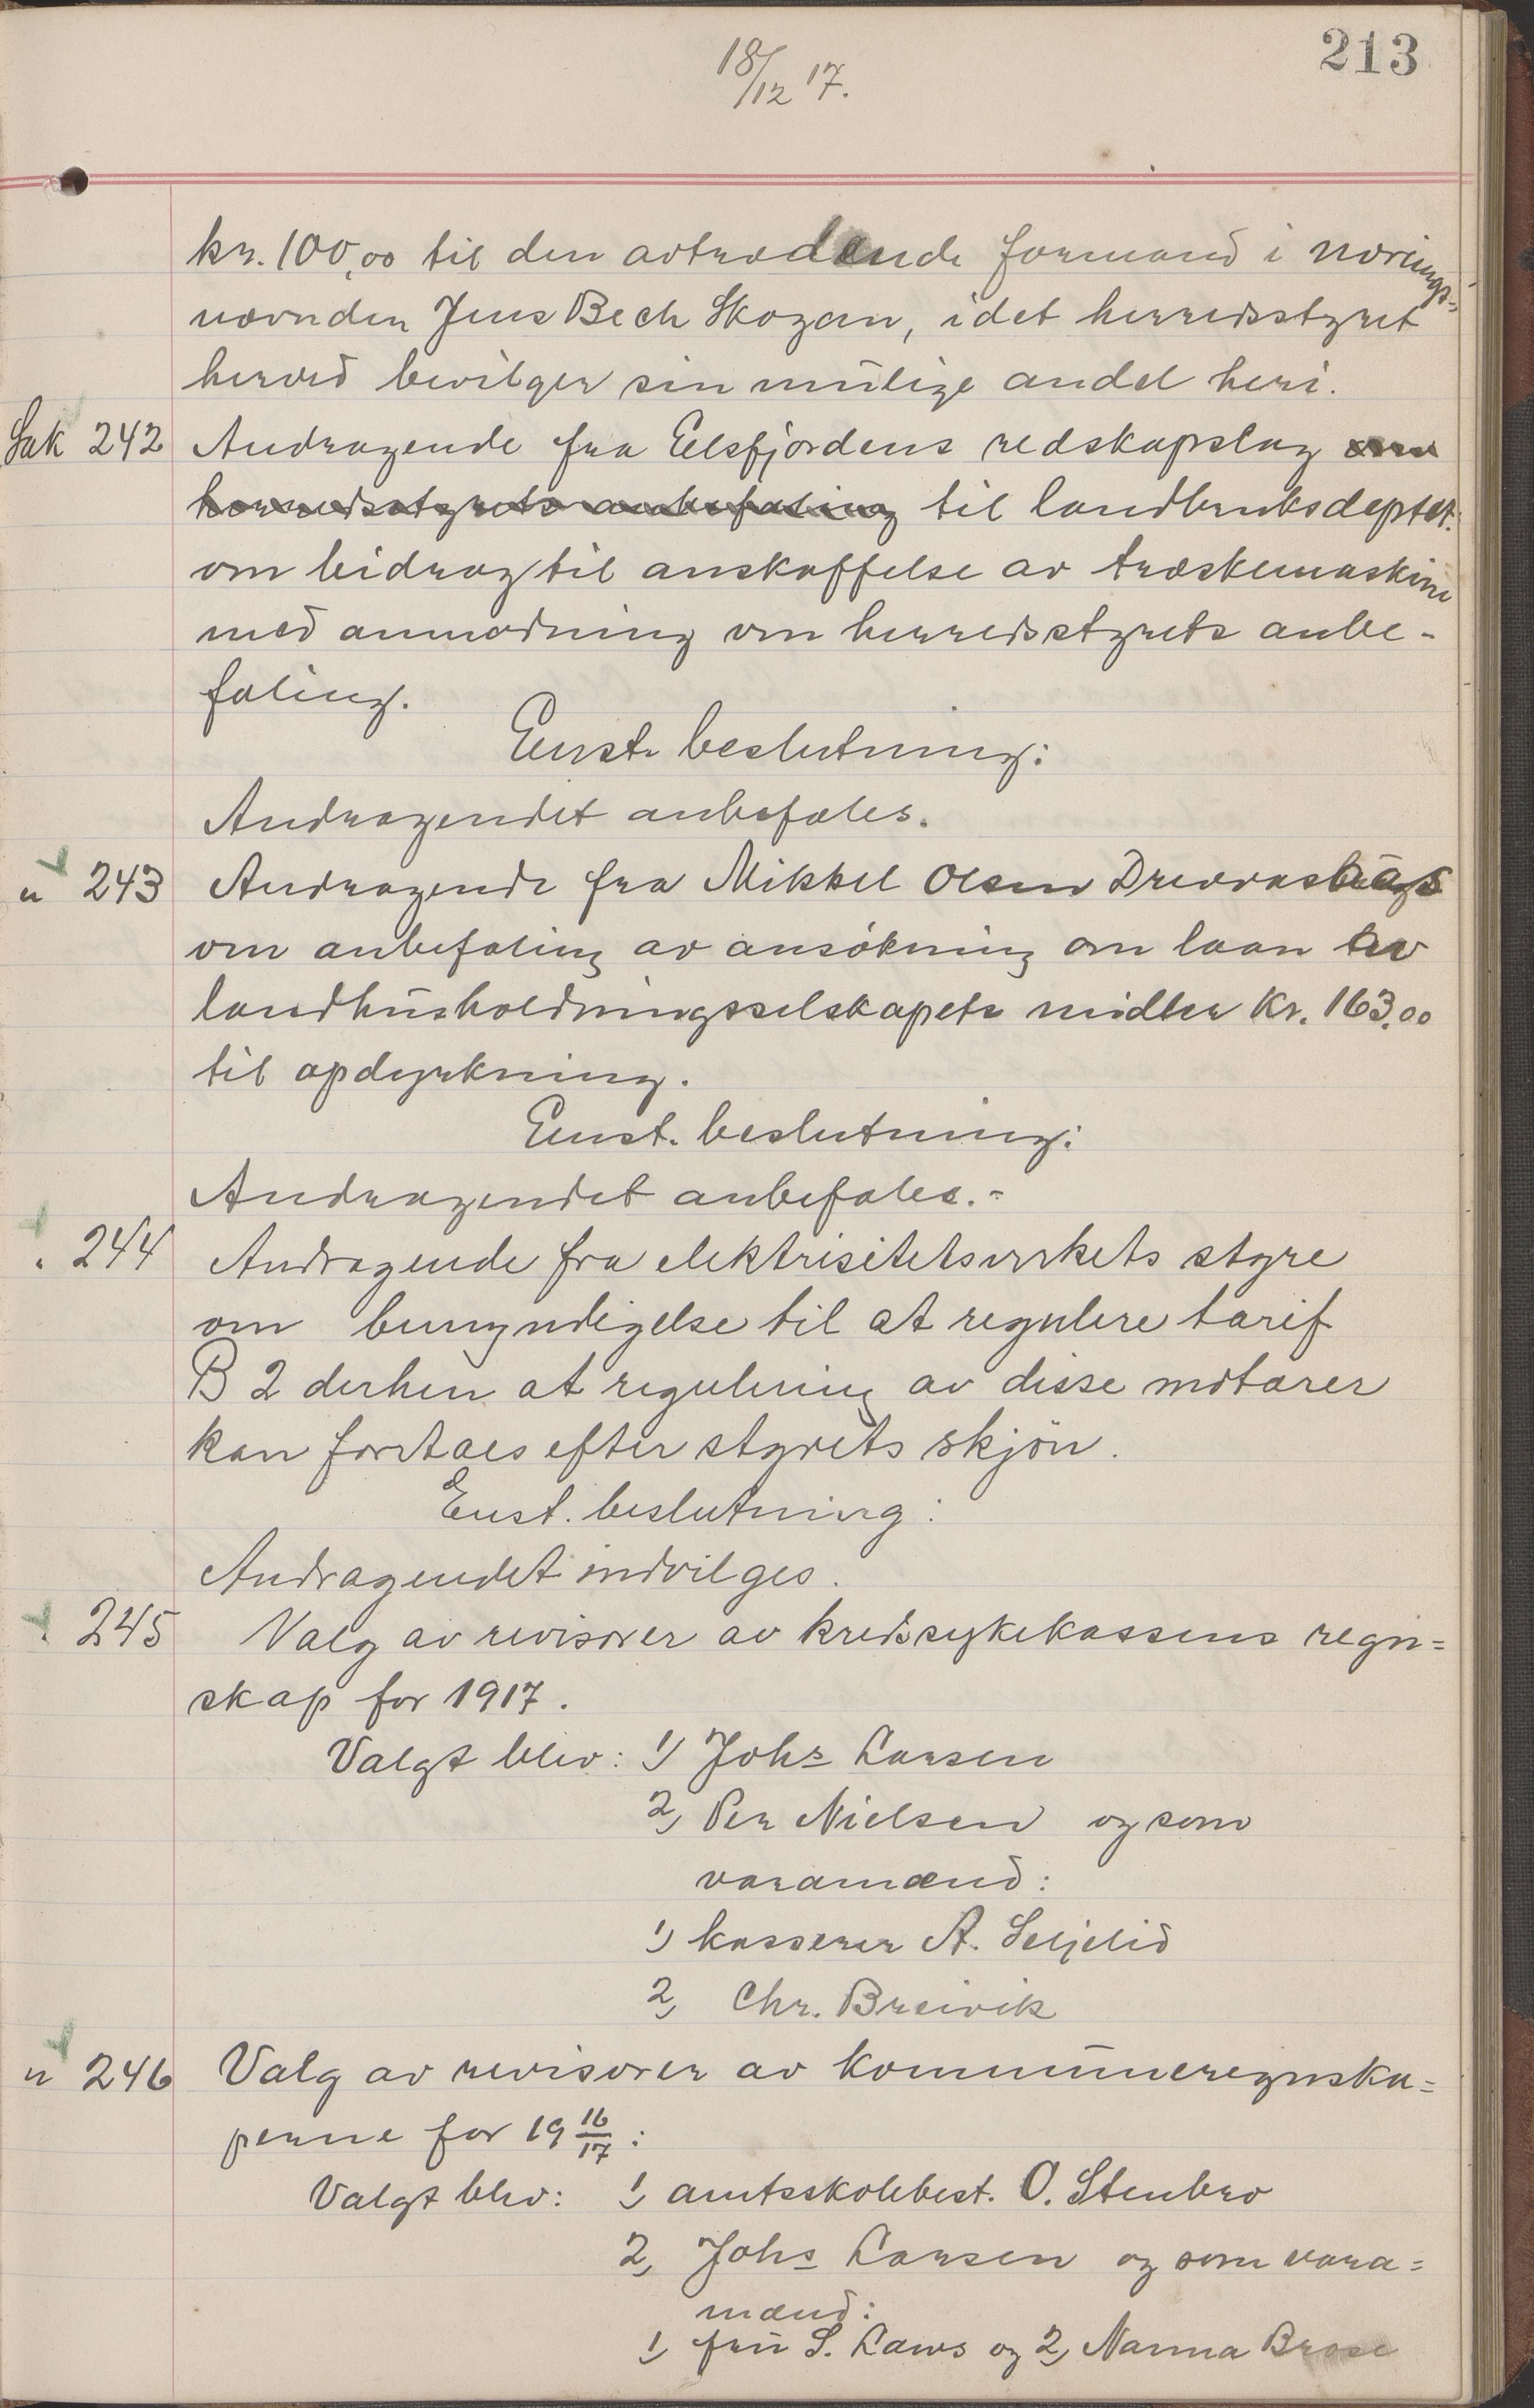 213
18/12 17.
kr. 100,00 til den avtrædende formand i nærings-
nævnden Jens Bech Skogan, idet herredsstyret
herved bevilger sin mulige andel heri.
Sak 242 Andragende fra Eelsfjordens redskapslag om
herredsstyrets anbefaling til landbruksdeptet.
om bidrag til anskaffelse av træskemaskine
med anmodning om herredsstyrets anbe-
faling.
Enst. beslutning:
Andragendet anbefales.
" 243 Andragende fra Mikkel Olsen
om anbefaling av ansökning om laan av
landhusholdningsselskapets midler kr. 163,00
til opdyrkning.
Enst. beslutning:
Andragendet anbefales.-
" 244 Andragende fra elektrisitetsverkets styre
om bemyndigelse til at regulere tarif
B 2 derhen at regulering av disse motorer
kan foretaes efter styrets skjön.
Enst. beslutning:
Andragendet indvilges.
" 245 Valg av revisorer av kredssykekassens regn=
skap for 1917.
Valgt blev: 1) Johs Larsen
2) Per Nielsen og som
varamænd:
1) kasserer A. Seljelid
2) Chr. Breivik
" 246 Valg av revisorer av kommuneregnska=
perne for 19 16/17:
Valgt blev: 1) amtsskolebest. O. Stenbro
2) Johs Larsen og som vara=
mænd:
1) fru S. Laws og 2) Nanna Brose